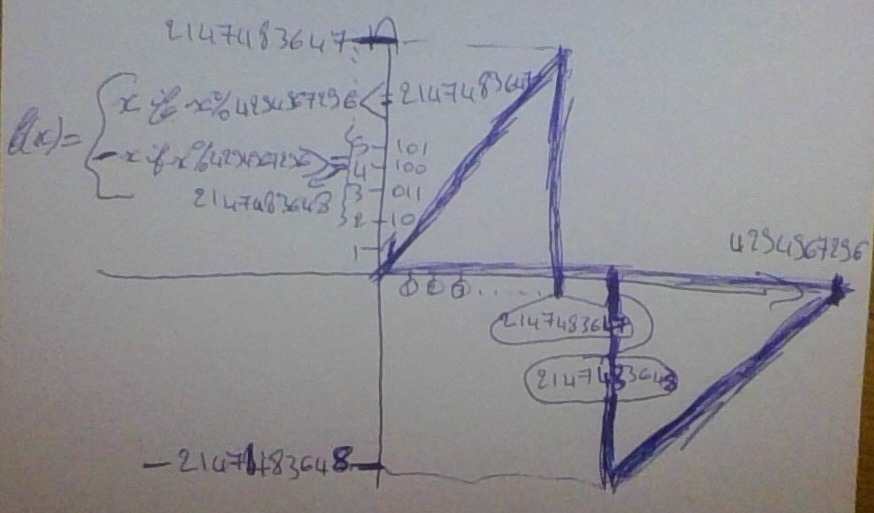 2147483647
f(x)=
x if x%4294967296 <= 2147483647
-x if x%4294967296 >=
2147483648
5 101
4 100
3 011
2 10
1
1 2 3 .....
4294967296
2147483647
2147483648
-2147483648